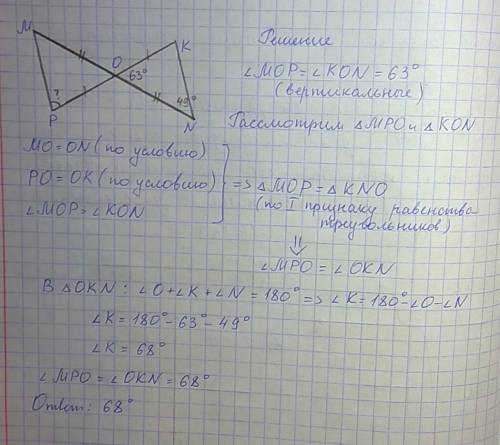 M
K
O
63°
?
P
49°
N
Решение
∠MOP = ∠KON = 63°
(вертикальные)
Рассмотрим △MPO и △KON
MO = ON (по условию)
PO = OK (по условию)
∠MOP = ∠KON
=> △MOP = △KNO
(по I признаку равенства
треугольников)
⇓
∠MPO = ∠OKN
В △OKN: ∠O + ∠K + ∠N = 180° => ∠K = 180° - ∠O - ∠N
∠K = 180° - 63° - 49°
∠K = 68°
∠MPO = ∠OKN = 68°
Ответ: 68°